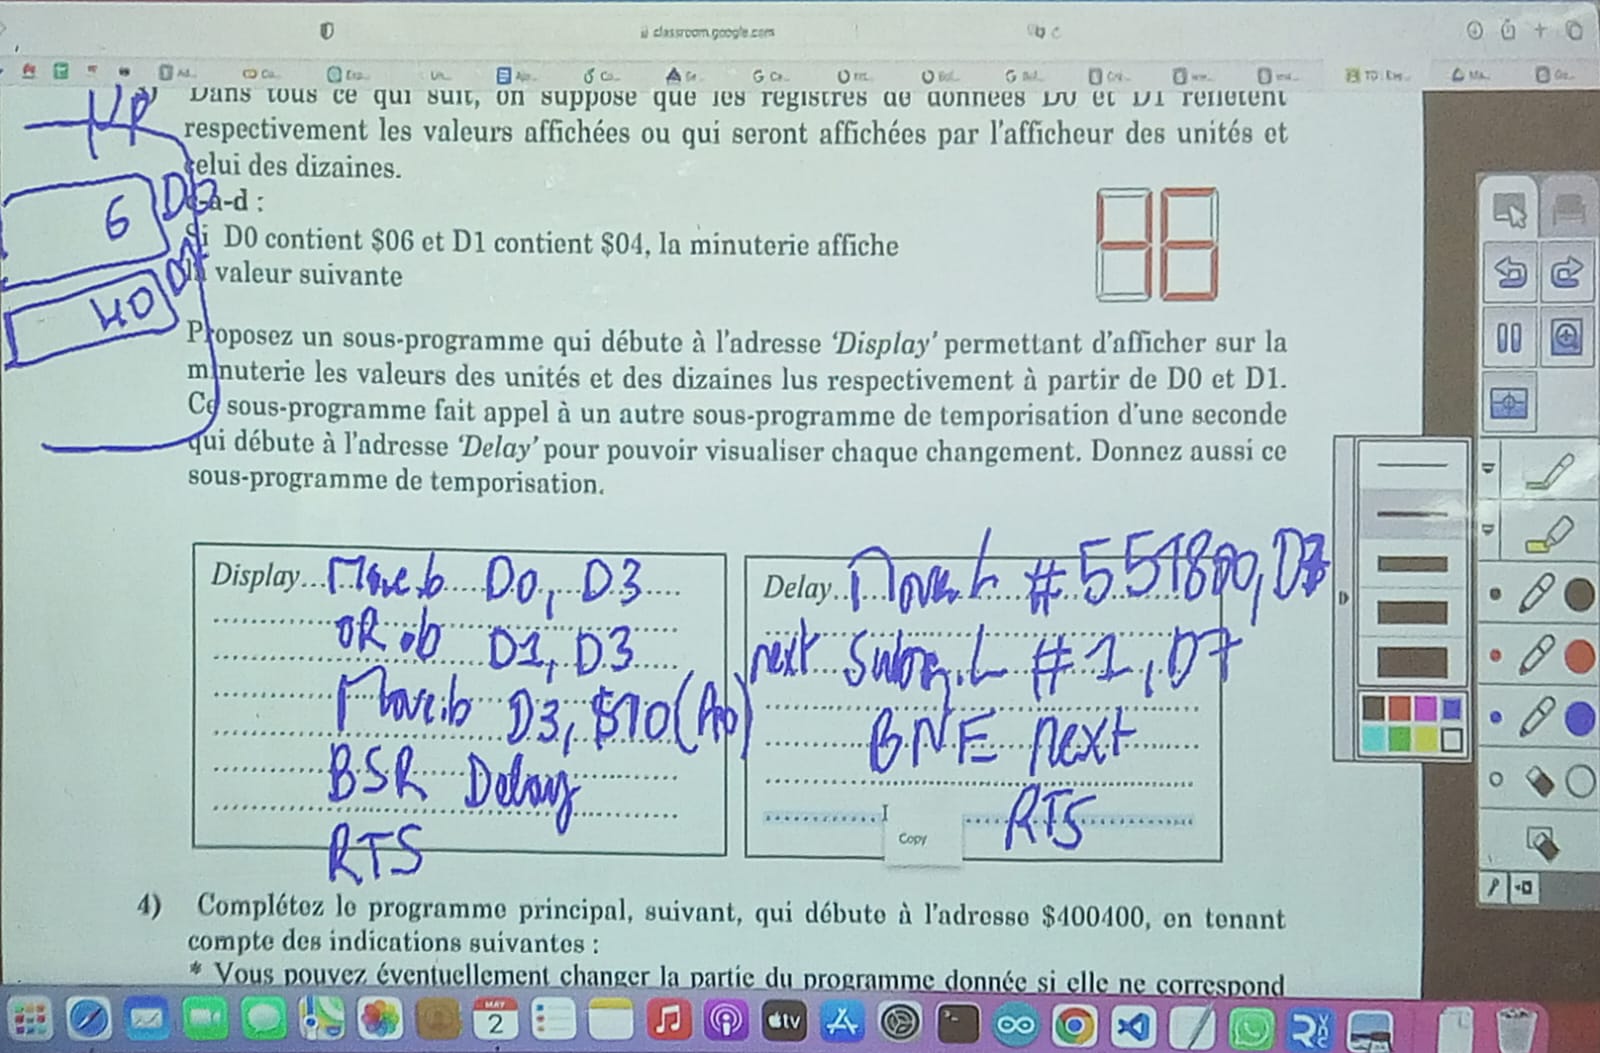 classroom.google.com
Dans tous ce qui suit, on suppose que les registres de données D0 et D1 reflètent
respectivement les valeurs affichées ou qui seront affichées par l'afficheur des unités et
celui des dizaines.
-à-d :
Si D0 contient $06 et D1 contient $04, la minuterie affiche
la valeur suivante
46
6
40
Proposez un sous-programme qui débute à l'adresse 'Display' permettant d'afficher sur la
minuterie les valeurs des unités et des dizaines lus respectivement à partir de D0 et D1.
Ce sous-programme fait appel à un autre sous-programme de temporisation d'une seconde
qui débute à l'adresse 'Delay' pour pouvoir visualiser chaque changement. Donnez aussi ce
sous-programme de temporisation.
Display... Move.b D0, D3
OR.b D1, D3
Move.b D3, $10(A0)
BSR Delay
RTS
Delay... Move.L
next Subq.L #1, D7
BNE next
RTS
Copy
4) Complétez le programme principal, suivant, qui débute à l'adresse $400400, en tenant
compte des indications suivantes :
* Vous pouvez éventuellement changer la partie du programme donnée si elle ne correspond
MAY
2
tv